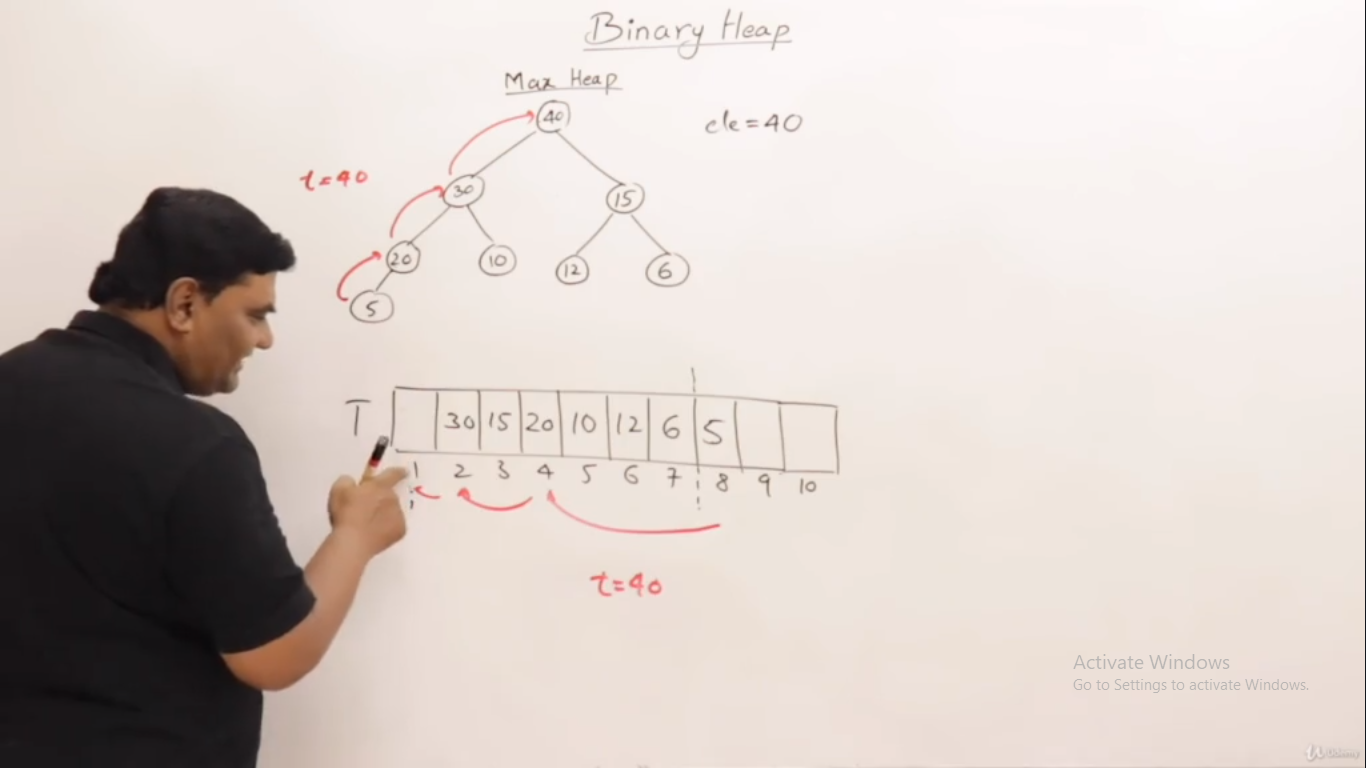 Binary Heap
Max Heap
40
ele=40
t=40
30
15
20
10
12
6
5
T
30 15 20 10 12 6 5
1 2 3 4 5 6 7 8 9 10
t=40
Activate Windows
Go to Settings to activate Windows.
Udemy